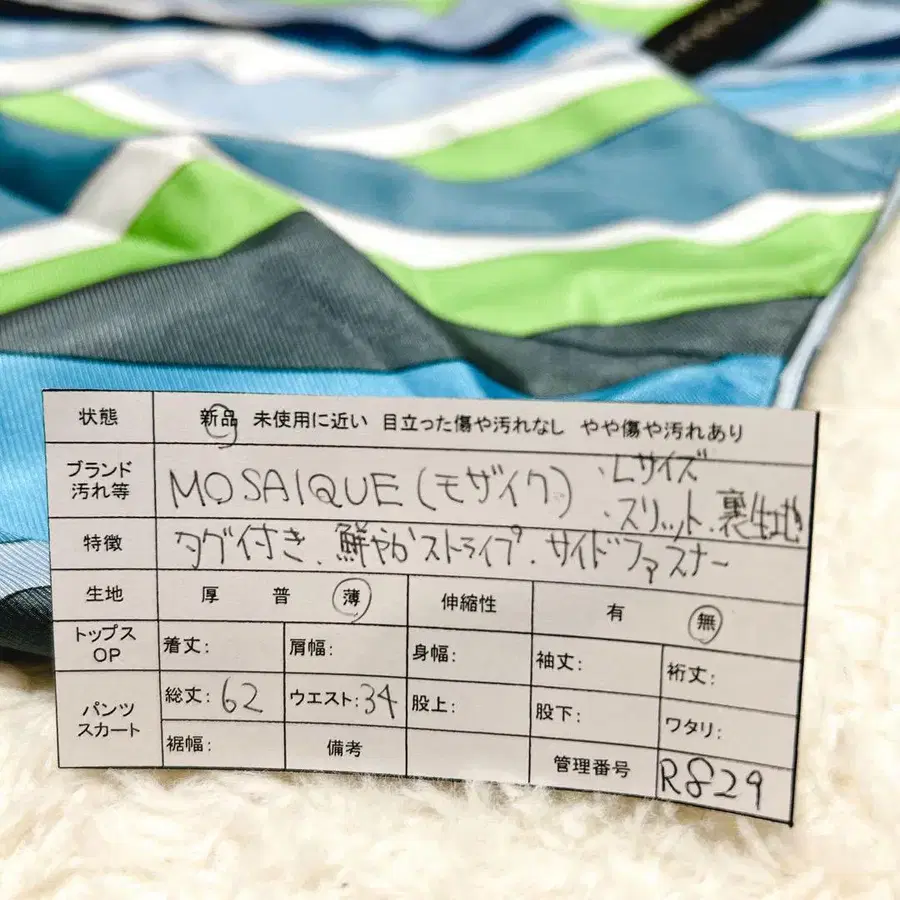 状態 新品 未使用に近い 目立った傷や汚れなし やや傷や汚れあり
ブランド
汚れ等
MOSAIQUE(モザイク) ・Lサイズ
・スリット・裏生地
特徴 タグ付き・鮮やかストライプ・サイドファスナー
生地 厚 普 薄 伸縮性 有 無
トップス
OP
着丈: 肩幅: 身幅: 袖丈: 裄丈:
パンツ
スカート
総丈:62 ウエスト:34 股上: 股下: ワタリ:
裾幅: 備考 管理番号 R829